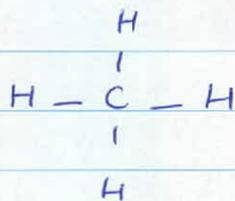 H
|
H – C – H
|
H